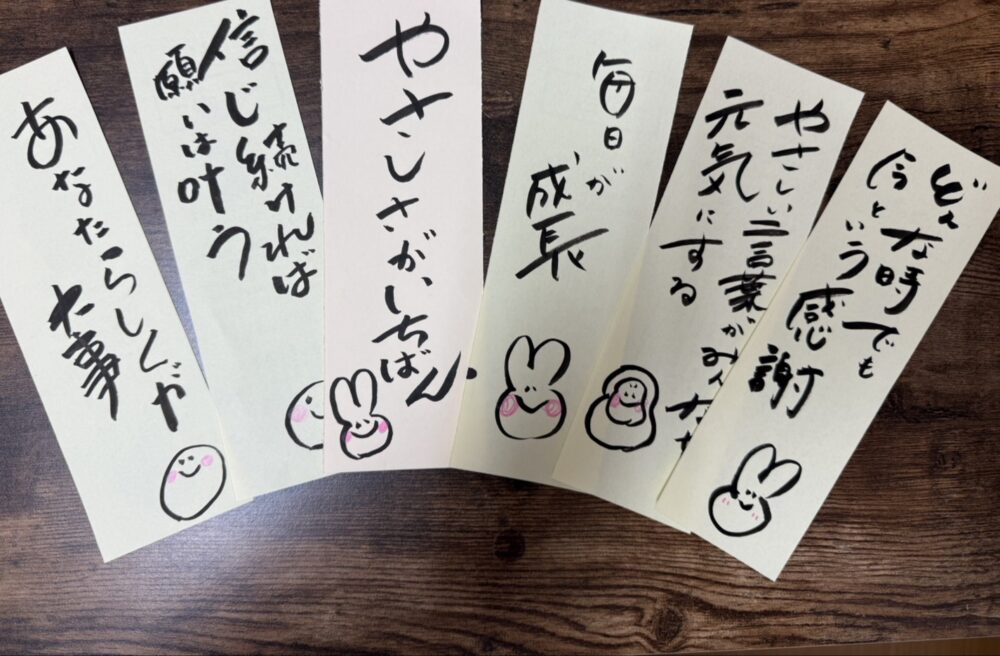 あなたらしくが
大事
信じ続ければ
願いは叶う
やさしさがいちばん
毎日が
成長
やさしい言葉がみんな
元気にする
どんな時でも
今という感謝